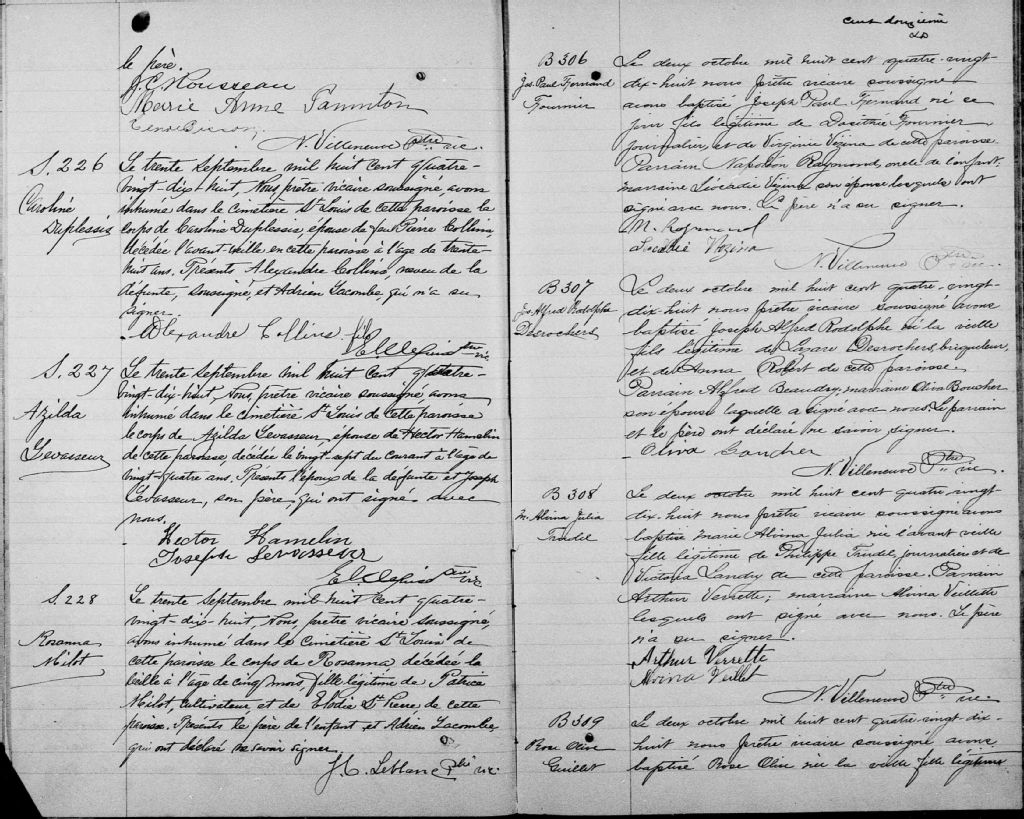 le père.
J.C. Rousseau
Marie Anne Pannton
N. Villeneuve Ptre vic.
S. 226
Caroline
Duplessis
Le trente septembre mil huit cent quatre-
vingt-dix-huit, Nous, prêtre vicaire soussigné, avons
inhumé dans le cimetière St Louis de cette paroisse le
corps de Caroline Duplessis, épouse de feu Pierre Collins
décédée l'avant-veille en cette paroisse à l'age de trente-
huit ans. Présents Alexandre Collins, neveu de la
défunte, soussigné, et Adrien Lacombe, qui n'a su
signer.
Alexandre Collins fils
ptre vic
S. 227
Azilda
Levasseur
Le trente septembre mil huit cent quatre-
vingt-dix-huit, Nous, prêtre vicaire soussigné, avons
inhumé dans le cimetière St Louis de cette paroisse
le corps de Azilda Levasseur, épouse de Hector Hamelin
de cette paroisse, décédée le vingt-sept du courant à l'age de
vingt-quatre ans. Présents l'époux de la défunte et Joseph
Levasseur, son père, qui ont signé avec
nous.
Hector Hamelin
Joseph Levasseur
ptre vic
S. 228
Rosanna
Milot
Le trente Septembre mil huit cent quatre-
vingt-dix-huit Nous, prêtre vicaire soussigné,
avons inhumé dans le Cimetière St Louis de
cette paroisse le corps de Rosanna décédée la
veille à l'âge de cinq mois, fille légitime de Patrice
Milot, cultivateur, et de Elodie St Pierre de cette
paroisse. Présents le père de l'enfant et Adrien Lacombe,
qui ont déclaré ne savoir signer.
J. L. Leblanc Ptre vic
cent douzième
B 306
Jos. Paul Fernand
Fournier
Le deux octobre mil huit cent quatre-vingt-
dix-huit nous prêtre vicaire soussigné
avons baptisé Joseph Paul Fernand né ce
jour fils légitime de Dosithé Fournier
journalier, et de Virginie Vézina de cette paroisse.
Parrain Napoléon Raymond, oncle de l'enfant,
marraine Léocadie Vézina son épouse lesquels ont
signé avec nous. Le père n'a su signer.
N. Raymond
Locadie Vézina
N. Villeneuve Ptre vic.
B 307
Jos Alfred Rodolphe
Desrochers
Le deux octobre mil huit cent quatre-vingt-
dix-huit nous prêtre vicaire soussigné avons
baptisé Joseph Alfred Rodolphe né la veille
fils légitime de Lazare Desrochers, briqueleur,
et de Anna Robert de cette paroisse.
Parrain Alfred Beaudry, marraine Oliva Boucher
son épouse laquelle a signé avec nous. Le parrain
et le père ont déclaré ne savoir signer.
Oliva
N. Villeneuve Ptre vic.
B 308
M. Alvina Julia
Trudel
Le deux octobre mil huit cent quatre vingt-
dix-huit nous prêtre vicaire soussigné avons
baptisé Marie Alvina Julia née l'avant veille
fille légitime de Philippe Trudel, journalier et de
Victoria Landry de cette paroisse. Parrain
Arthur Verrette; marraine Alvina Veillette
lesquels ont signé avec nous. Le père
n'a su signer.
Arthur Verrette
Alvina Veillet
N. Villeneuve Ptre vic.
B 309
Rose Olive
Guillet
Le deux octobre mil huit cent quatre-vingt dix-
huit nous prêtre vicaire soussigné avons
baptisé Rose Olive née la veille fille légitime